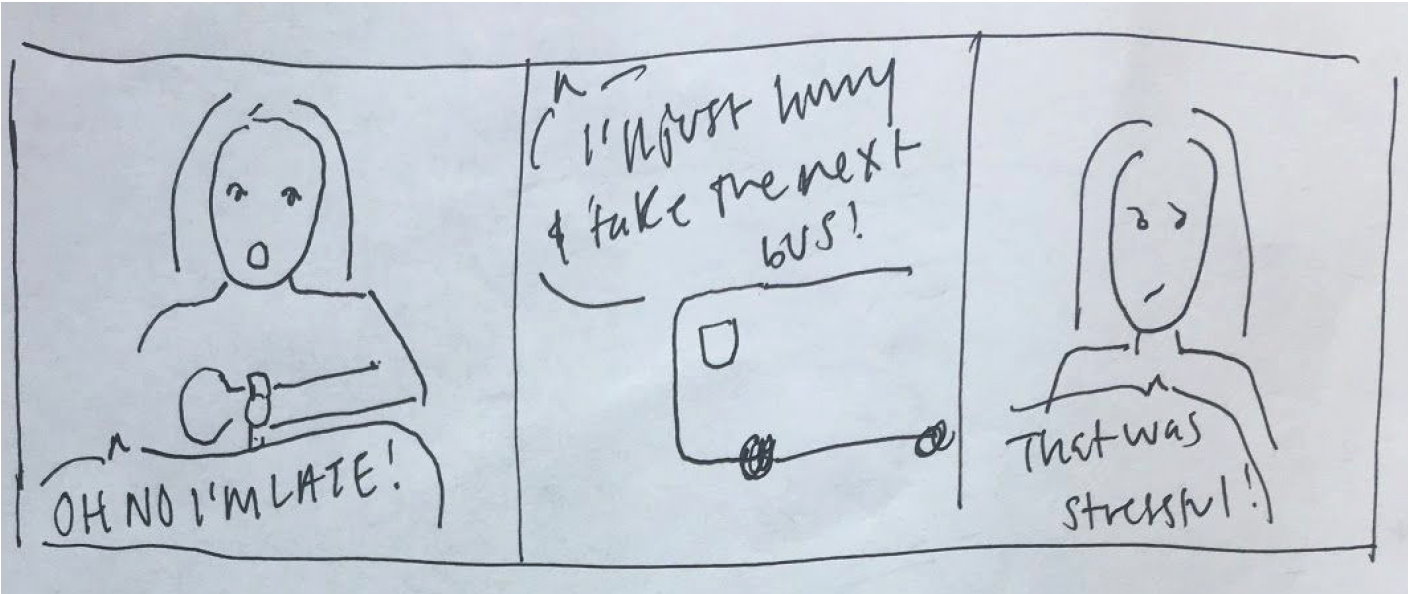 OH NO I'M LATE!
I'll just hurry
& take the next
bus!
That was
stressful!